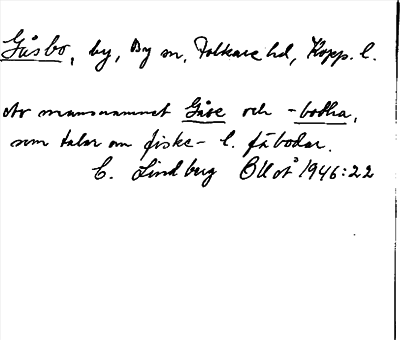 Gåsbo, by, By sn, Folkare hd, Kopp. l.
Av mansnamnet Gåse och -bodha,
som talar om fiske- l. fäbodar.
C. Lindberg BUoÅ 1946:22